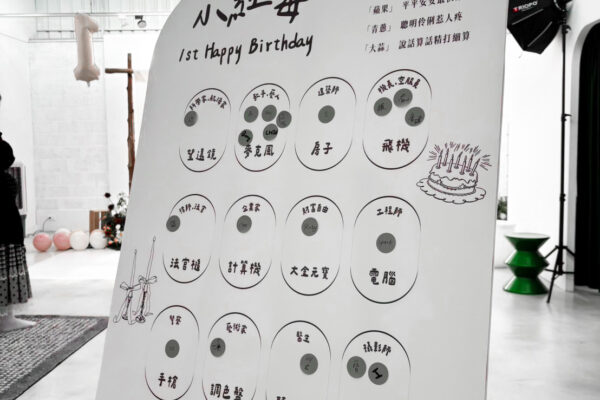 1st Happy Birthday
「蘋果」 平平安安
「青蔥」 聰明伶俐惹人疼
「大蒜」 說話算話精打細算
TRIOPO
望遠鏡
歌手、藝人
麥克風
建築師
房子
機長、空服員
飛機
律師、法官
法官槌
企業家
計算機
財富自由
大金元寶
工程師
電腦
警察
手槍
藝術家
調色盤
醫生
攝影師